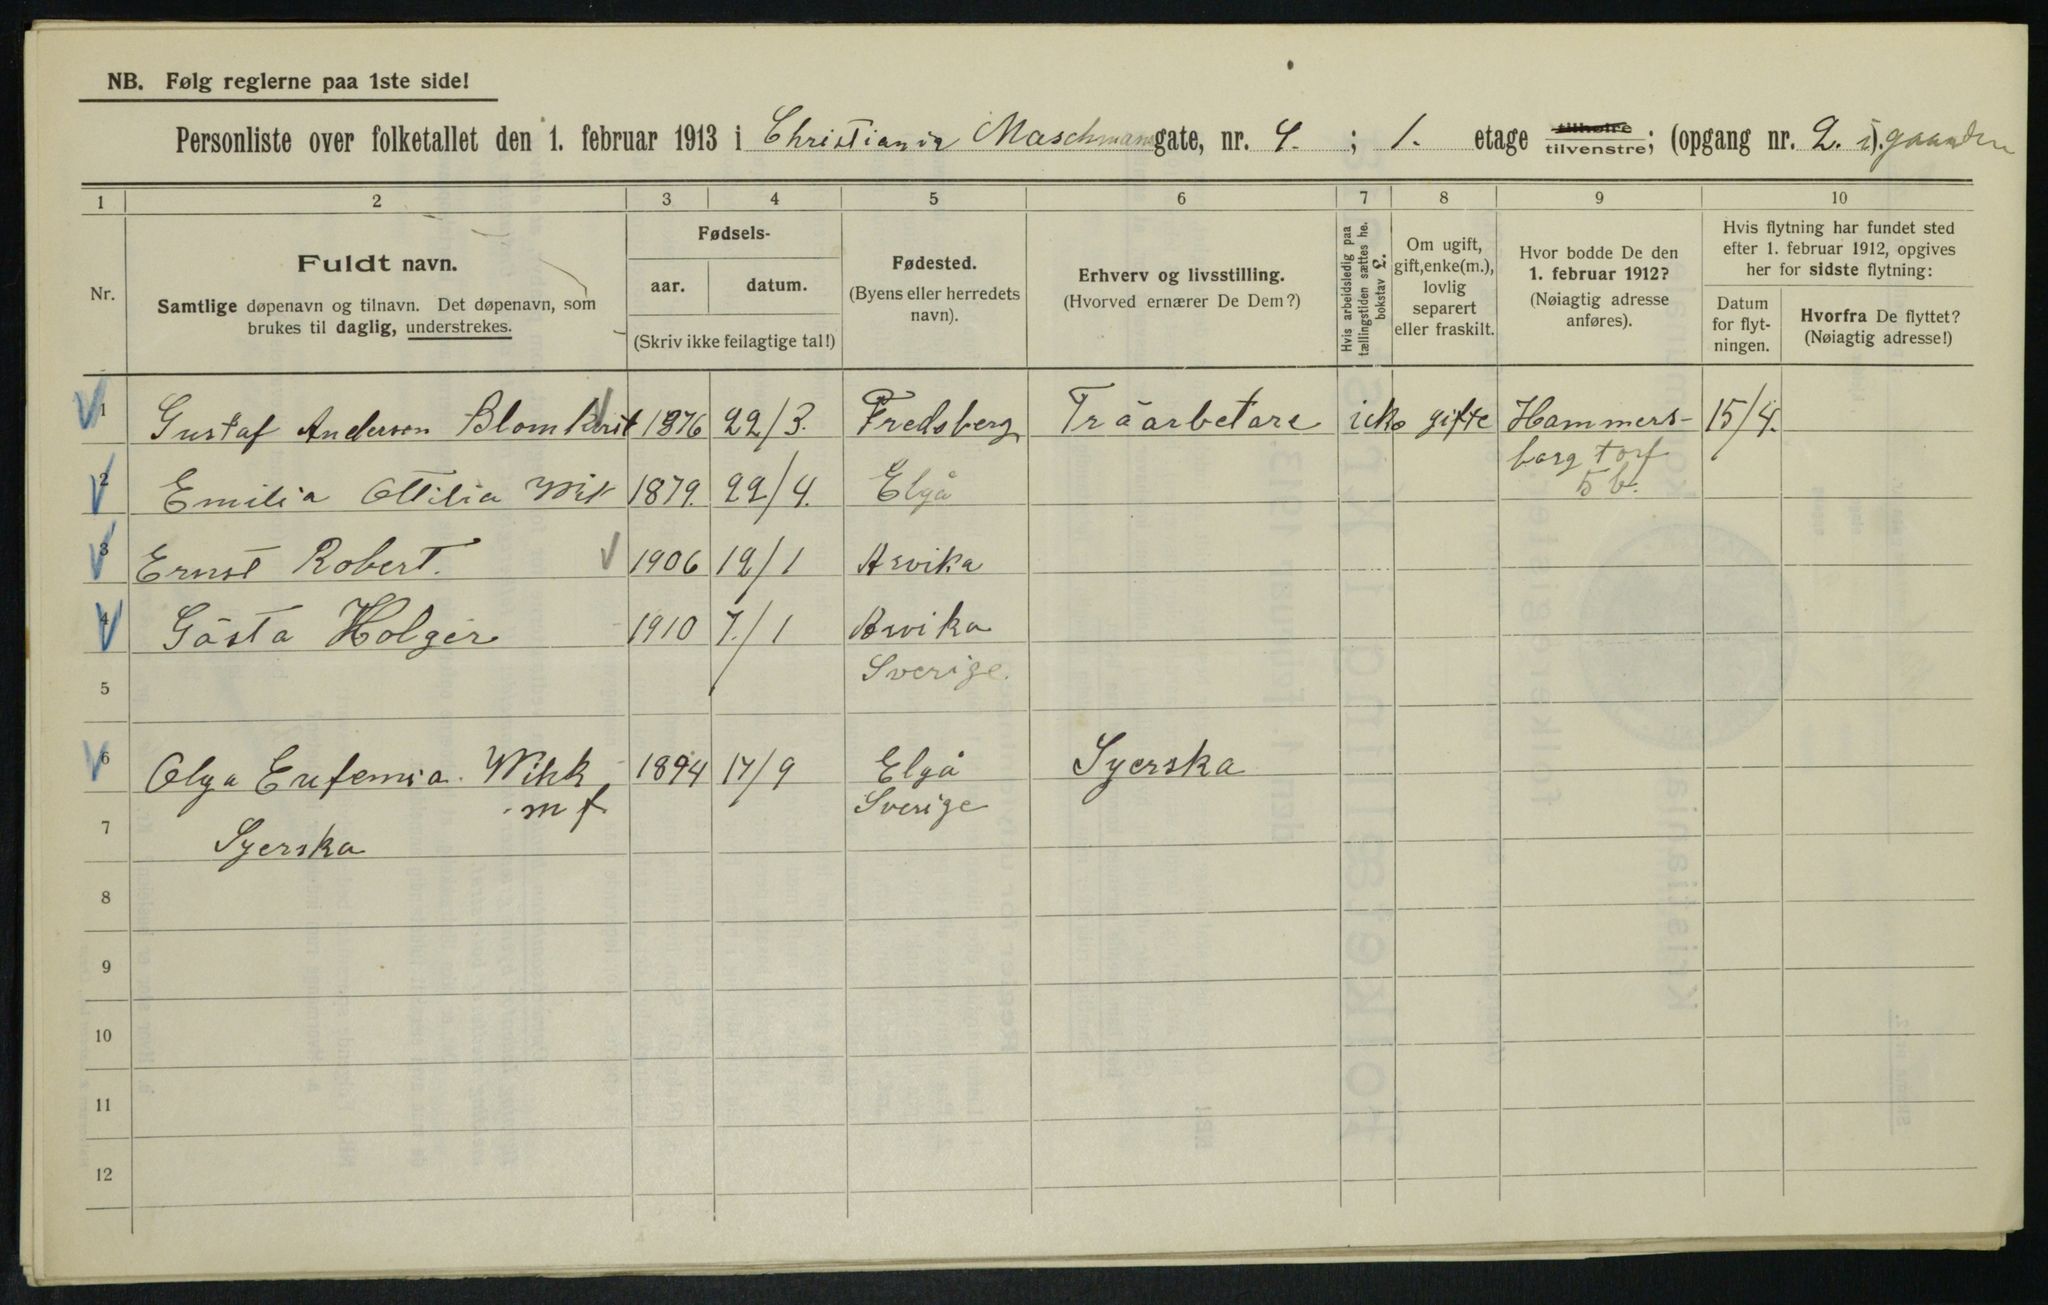 NB. Følg reglerne paa 1ste side!
Personliste over folketallet den 1. februar 1913 i Christiania Maschmansgate, nr. 4. ; 1. etage tilhøire tilvenstre; (opgang nr. 2. i). gaarden
1 2 3 4 5 6 7 8 9 10
Nr.
Fuldt navn.
Samtlige døpenavn og tilnavn. Det døpenavn, som
brukes til daglig, understrekes.
Fødsels-
aar. datum.
(Skriv ikke feilagtige tal!)
Fødested.
(Byens eller herredets
navn).
Erhverv og livsstilling.
(Hvorved ernærer De Dem?)
Hvis arbeidsledig paa
tællingstiden sættes he.
bokstav L.
Om ugift,
gift, enke(m.),
lovlig
separert
eller fraskilt.
Hvor bodde De den
1. februar 1912?
(Nøiagtig adresse
anføres).
Hvis flytning har fundet sted
efter 1. februar 1912, opgives
her for sidste flytning:
Datum
for flyt-
ningen.
Hvorfra De flyttet?
(Nøiagtig adresse!)
1 Gustaf Anderson Blomkvist 1876 22/3. Fredsberg Träarbetare icke gifte Hammers- 15/4.
borg torf
5 b.
2 Emilia Ottilia Wik 1879. 22/4. Elgå
3 Ernst Robert. 1906 12/1 Arvika
4 Gösta Holger 1910 7./1 Arvika
5 Sverige.
6 Olga Eufemia Wikk 1894 17/9 Elgå Syerska
m f Sverige
7 Syerska
8
9
10
11
12